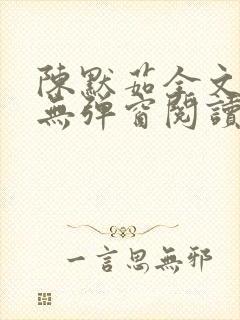 陳默茹全文
無彈窗閱讀
一言思無邪